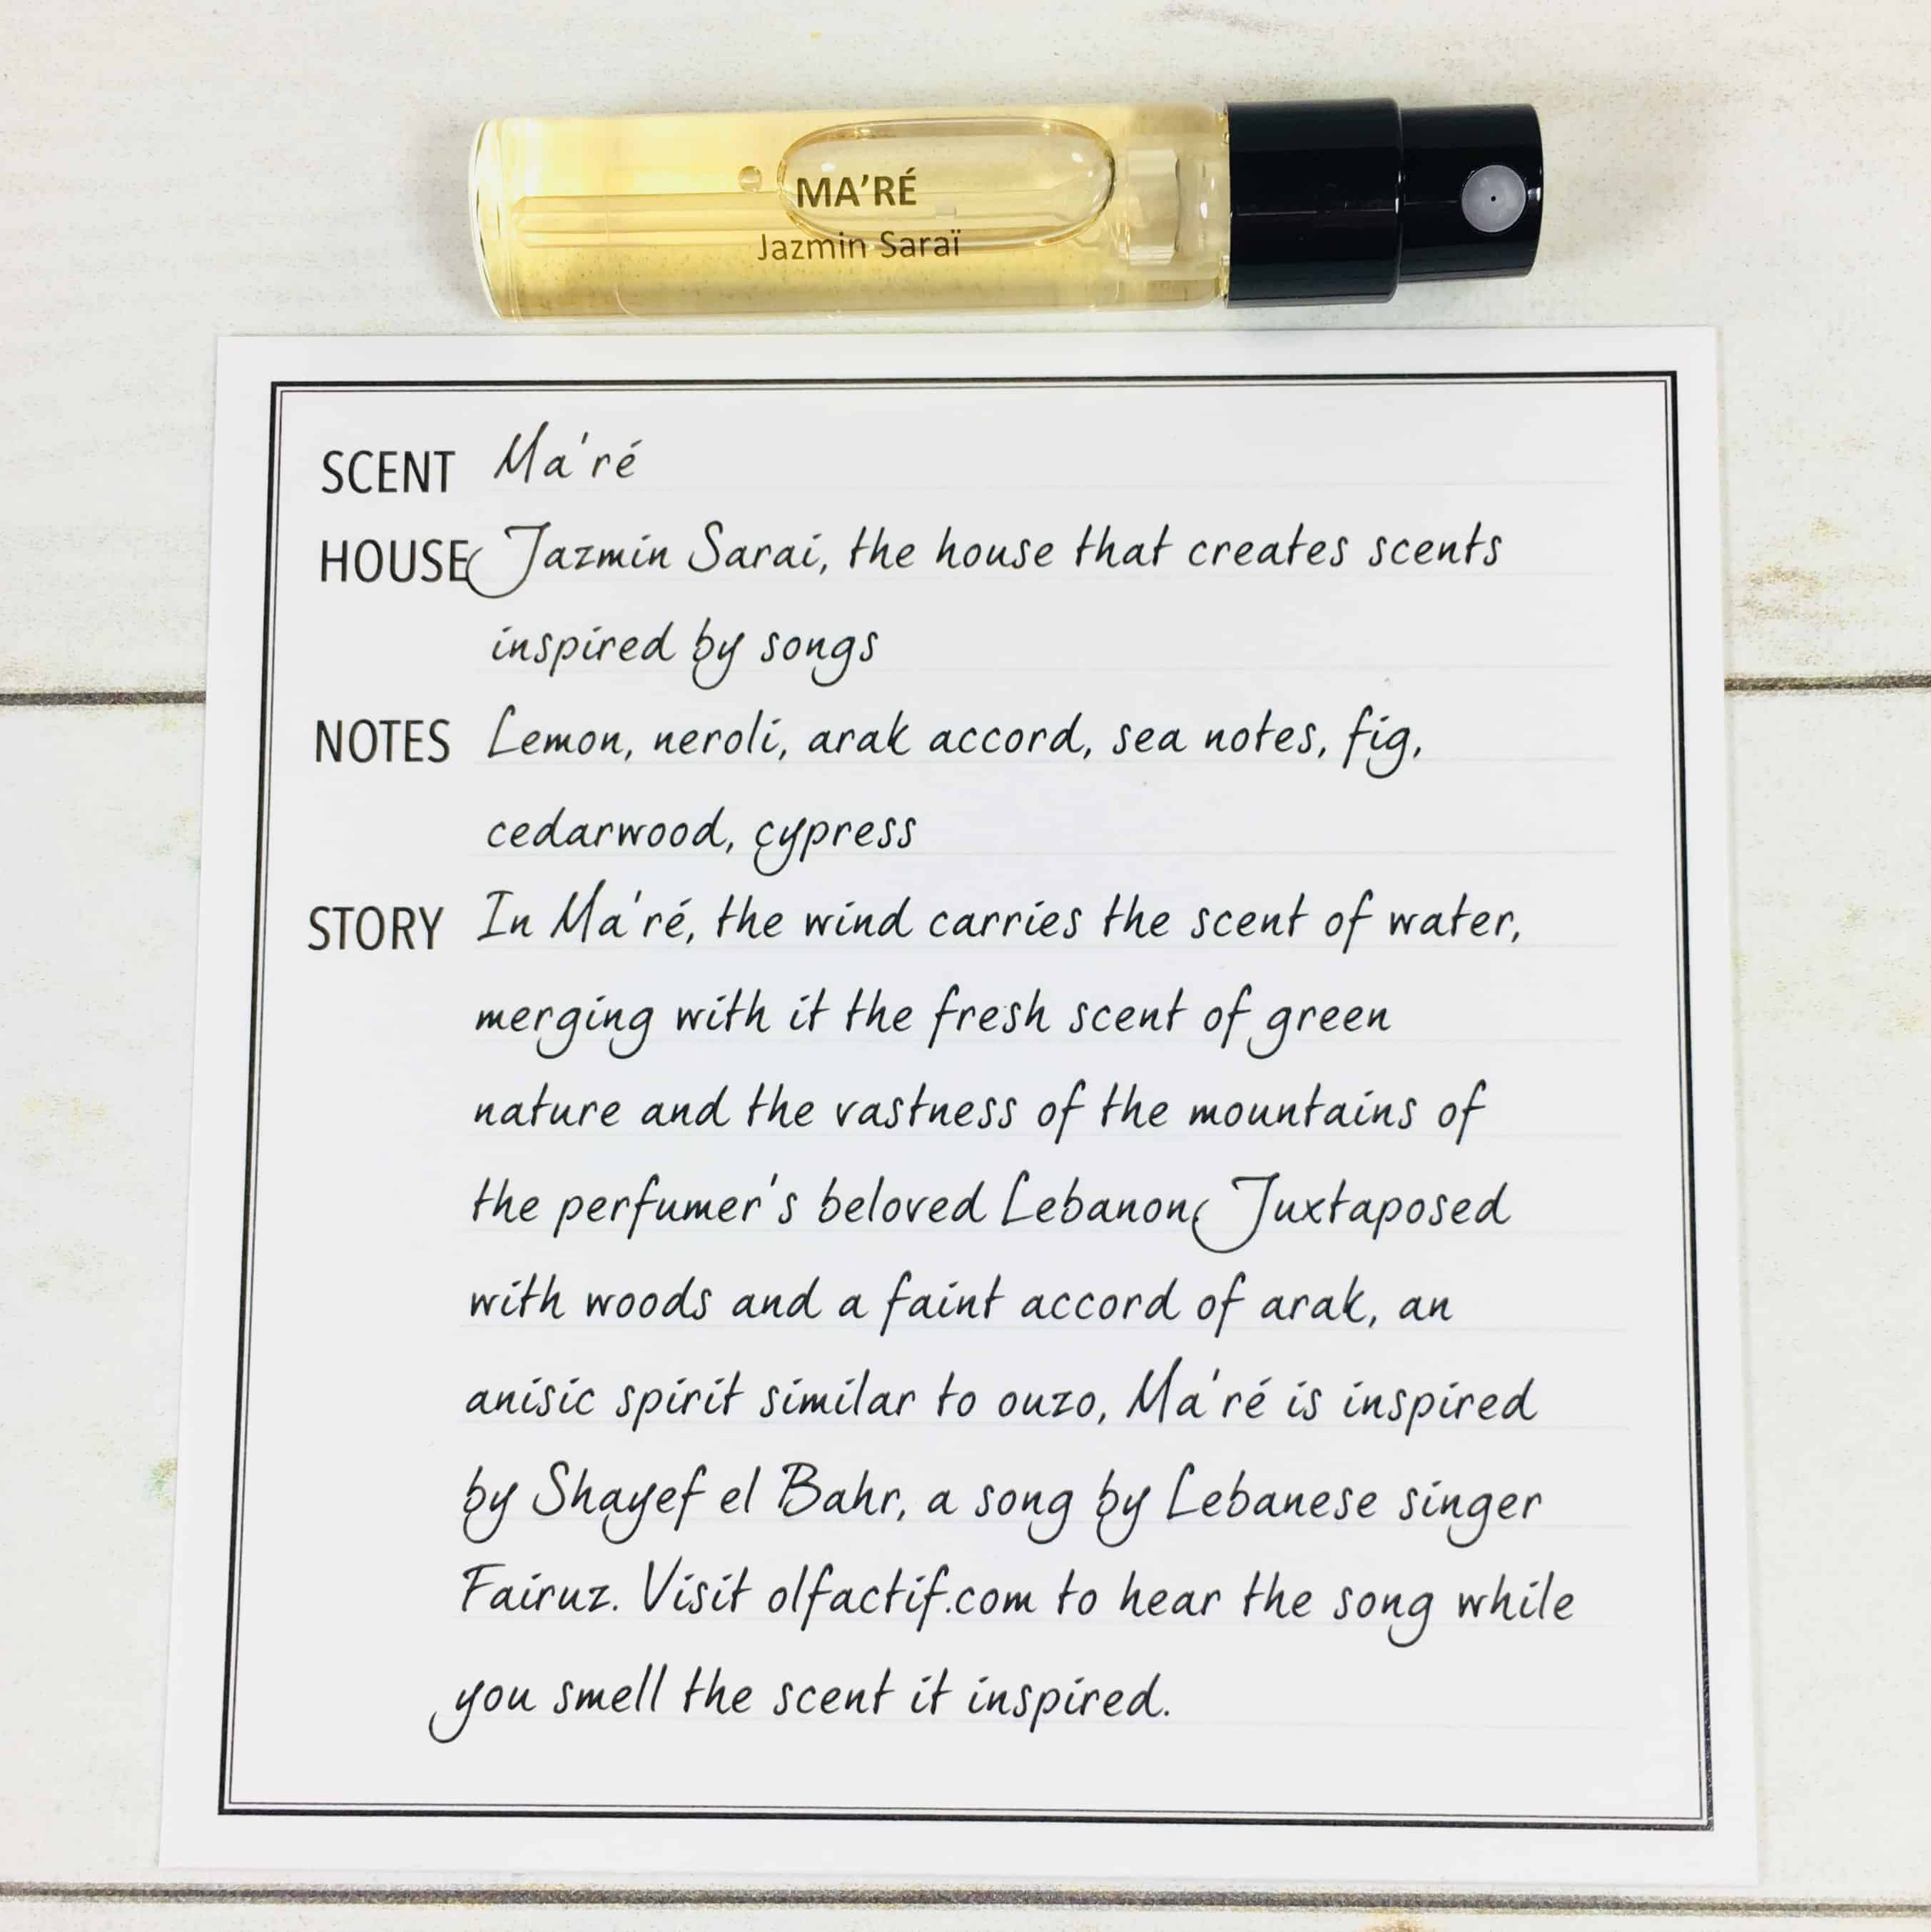 MA'RÉ
Jazmin Saraï
SCENT Ma'ré
HOUSE Jazmin Sarai, the house that creates scents
inspired by songs
NOTES Lemon, neroli, arak accord, sea notes, fig,
cedarwood, cypress
STORY In Ma'ré, the wind carries the scent of water,
merging with it the fresh scent of green
nature and the vastness of the mountains of
the perfumer's beloved Lebanon. Juxtaposed
with woods and a faint accord of arak, an
anisic spirit similar to ouzo, Ma'ré is inspired
by Shayef el Bahr, a song by Lebanese singer
Fairuz. Visit olfactif.com to hear the song while
you smell the scent it inspired.